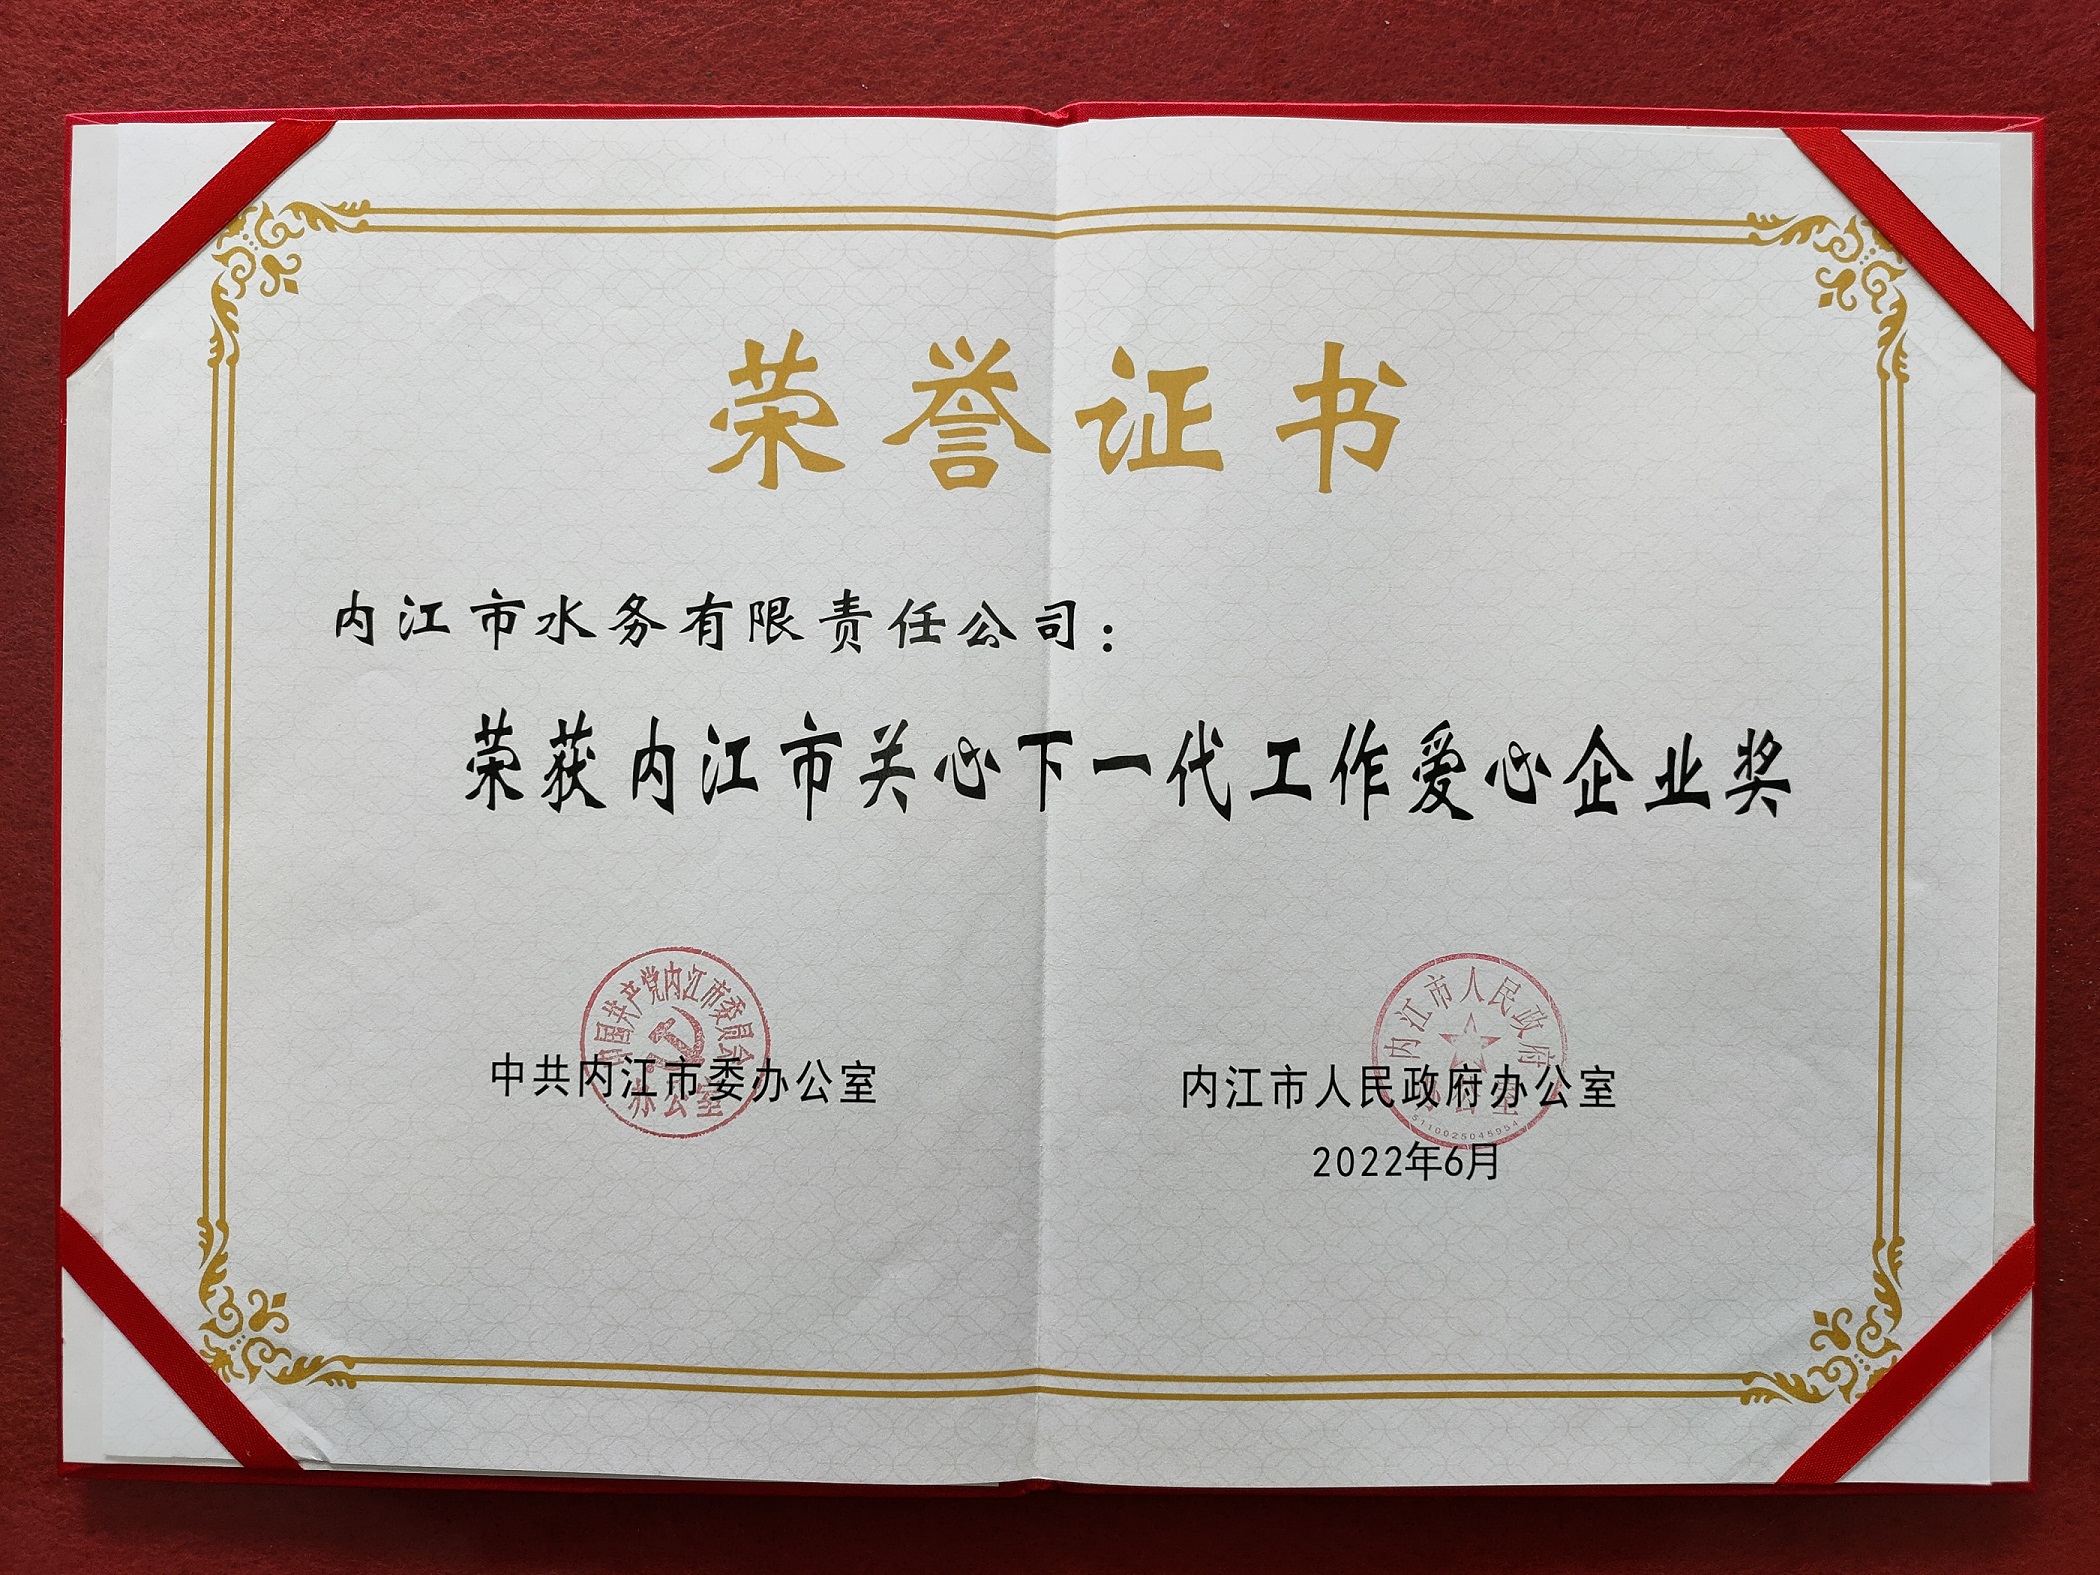 荣誉证书
内江市水务有限责任公司：
荣获内江市关心下一代工作爱心企业奖
中国共产党内江市委員会
办公室
中共内江市委办公室
内江市人民政府
办公室
5110025045954
内江市人民政府办公室
2022年6月